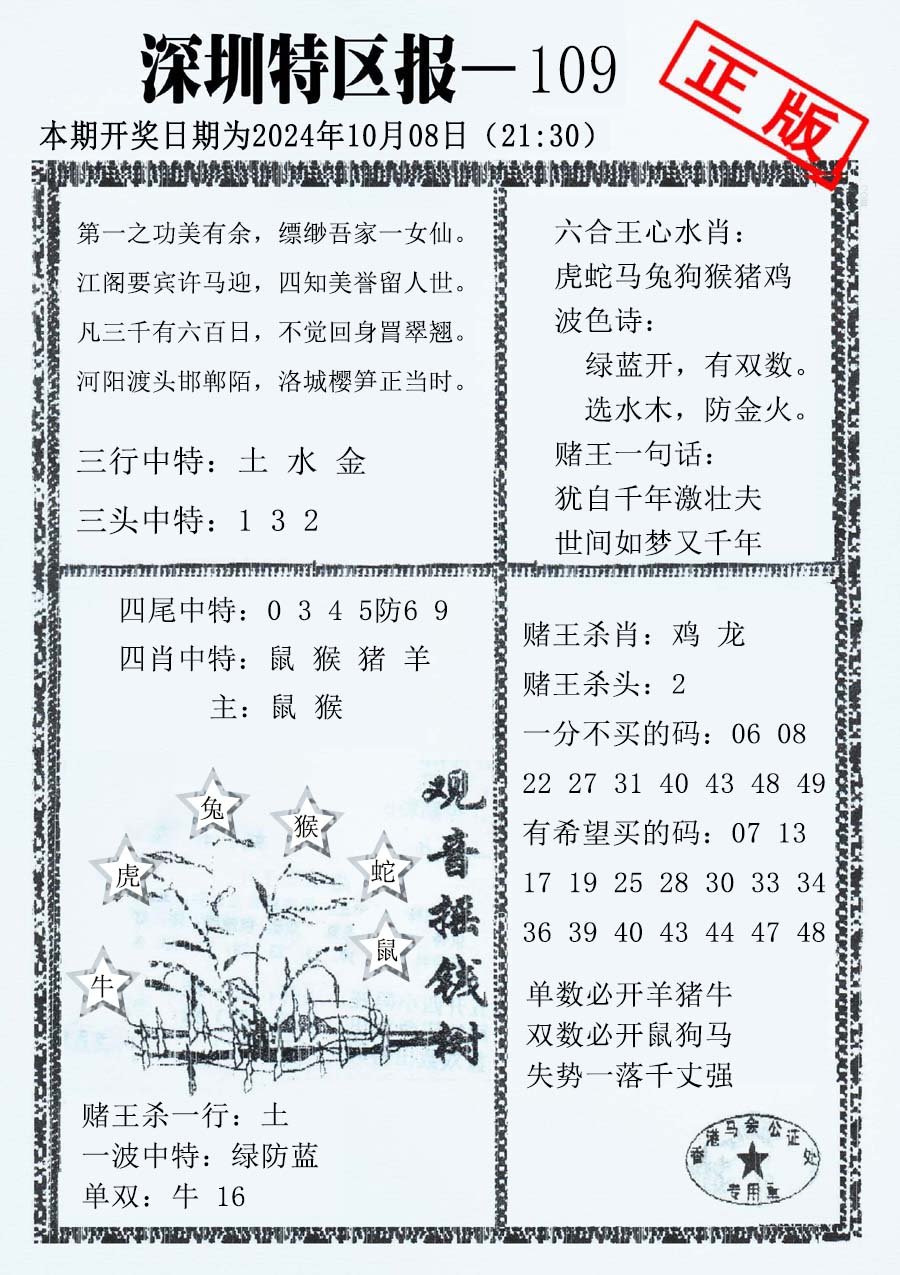 深圳特区报—109
正版
本期开奖日期为2024年10月08日（21:30）
第一之功美有余，缥缈吾家一女仙。
江阁要宾许马迎，四知美誉留人世。
凡三千有六百日，不觉回身罥翠翘。
河阳渡头邯郸陌，洛城樱笋正当时。
三行中特：土 水 金
三头中特：1 3 2
六合王心水肖：
虎蛇马兔狗猴猪鸡
波色诗：
绿蓝开，有双数。
选水木，防金火。
赌王一句话：
犹自千年激壮夫
世间如梦又千年
四尾中特：0 3 4 5防6 9
四肖中特：鼠 猴 猪 羊
主：鼠 猴
观音摇钱树
兔
猴
虎
蛇
鼠
牛
赌王杀一行：土
一波中特：绿防蓝
单双：牛 16
赌王杀肖：鸡 龙
赌王杀头：2
一分不买的码：06 08
22 27 31 40 43 48 49
有希望买的码：07 13
17 19 25 28 30 33 34
36 39 40 43 44 47 48
单数必开羊猪牛
双数必开鼠狗马
失势一落千丈强
香港马会公证处
专用章